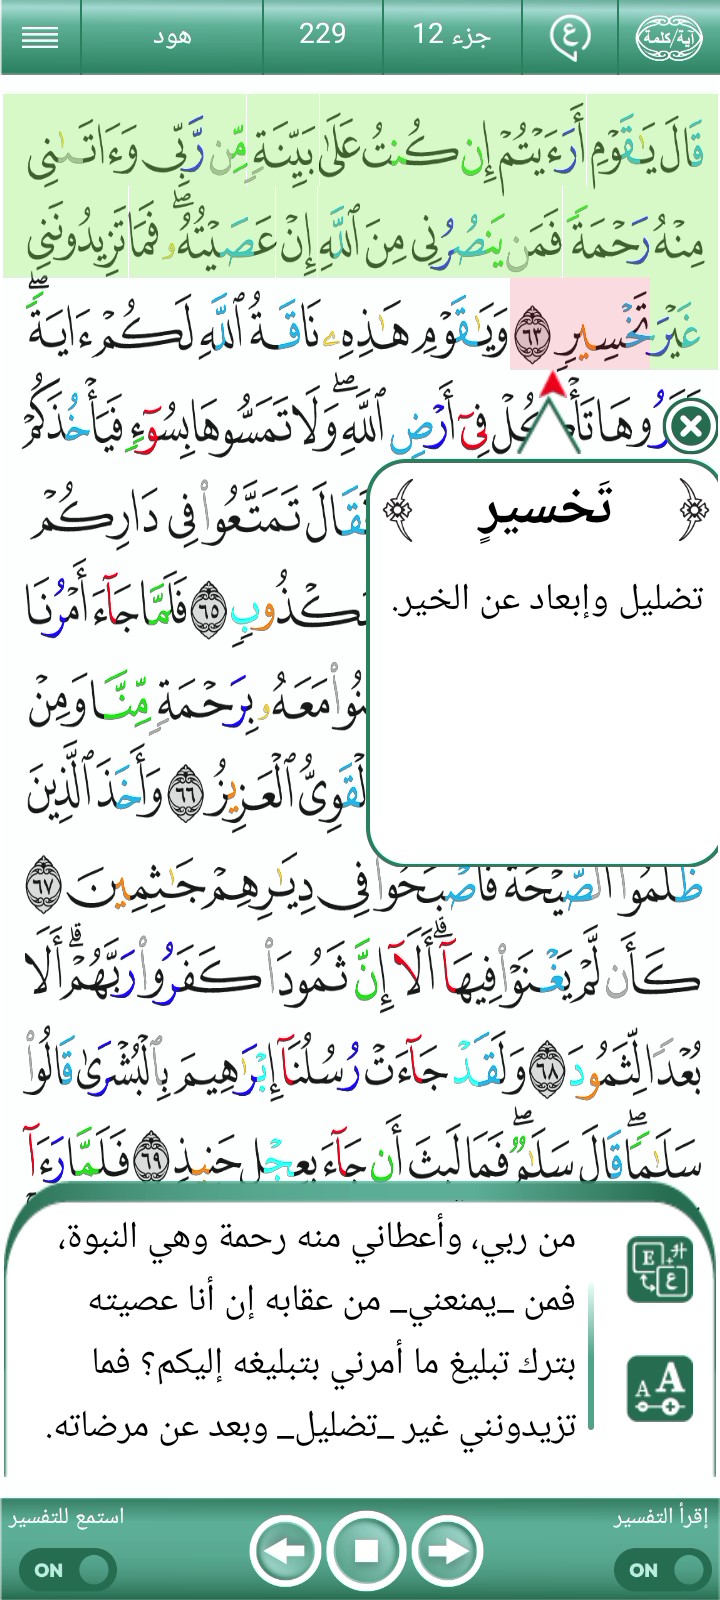 هود
229
جزء 12
ع
آية/كلمة
قَالَ يَٰقَوْمِ أَرَءَيْتُمْ إِن كُنتُ عَلَىٰ بَيِّنَةٍ مِّن رَّبِّى وَءَاتَىٰنِى
مِنْهُ رَحْمَةً فَمَن يَنصُرُنِى مِنَ ٱللَّهِ إِنْ عَصَيْتُهُۥ ۖ فَمَا تَزِيدُونَنِى
غَيْرَ تَخْسِيرٍ ٦٣ وَيَٰقَوْمِ هَٰذِهِۦ نَاقَةُ ٱللَّهِ لَكُمْ ءَايَةً ۖ
تَأْكُلْ فِىٓ أَرْضِ ٱللَّهِ ۖ وَلَا تَمَسُّوهَا بِسُوٓءٍ فَيَأْخُذَكُمْ
فَقَالَ تَمَتَّعُوا۟ فِى دَارِكُمْ
مَكْذُوبٍ ٦٥ فَلَمَّا جَآءَ أَمْرُنَا
مَعَهُۥ بِرَحْمَةٍ مِّنَّا وَمِنْ
ٱلْقَوِىُّ ٱلْعَزِيزُ ٦٦ وَأَخَذَ ٱلَّذِينَ
ظَلَمُوا۟ ٱلصَّيْحَةُ فَأَصْبَحُوا۟ فِى دِيَٰرِهِمْ جَٰثِمِينَ ٦٧
كَأَن لَّمْ يَغْنَوْا۟ فِيهَآ ۗ أَلَآ إِنَّ ثَمُودَا۟ كَفَرُوا۟ رَبَّهُمْ ۗ أَلَا
بُعْدًا لِّثَمُودَ ٦٨ وَلَقَدْ جَآءَتْ رُسُلُنَآ إِبْرَٰهِيمَ بِٱلْبُشْرَىٰ قَالُوا۟
سَلَٰمًا ۖ قَالَ سَلَٰمٌ ۖ فَمَا لَبِثَ أَن جَآءَ بِعِجْلٍ حَنِيذٍ ٦٩ فَلَمَّا رَءَآ
تَخسيرٍ
تضليل وإبعاد عن الخير.
من ربي، وأعطاني منه رحمة وهي النبوة،
فمن _يمنعني_ من عقابه إن أنا عصيته
بترك تبليغ ما أمرني بتبليغه إليكم؟ فما
تزيدونني غير _تضليل_ وبعد عن مرضاته.
E ع
A A
إقرأ التفسير
استمع للتفسير
ON
ON